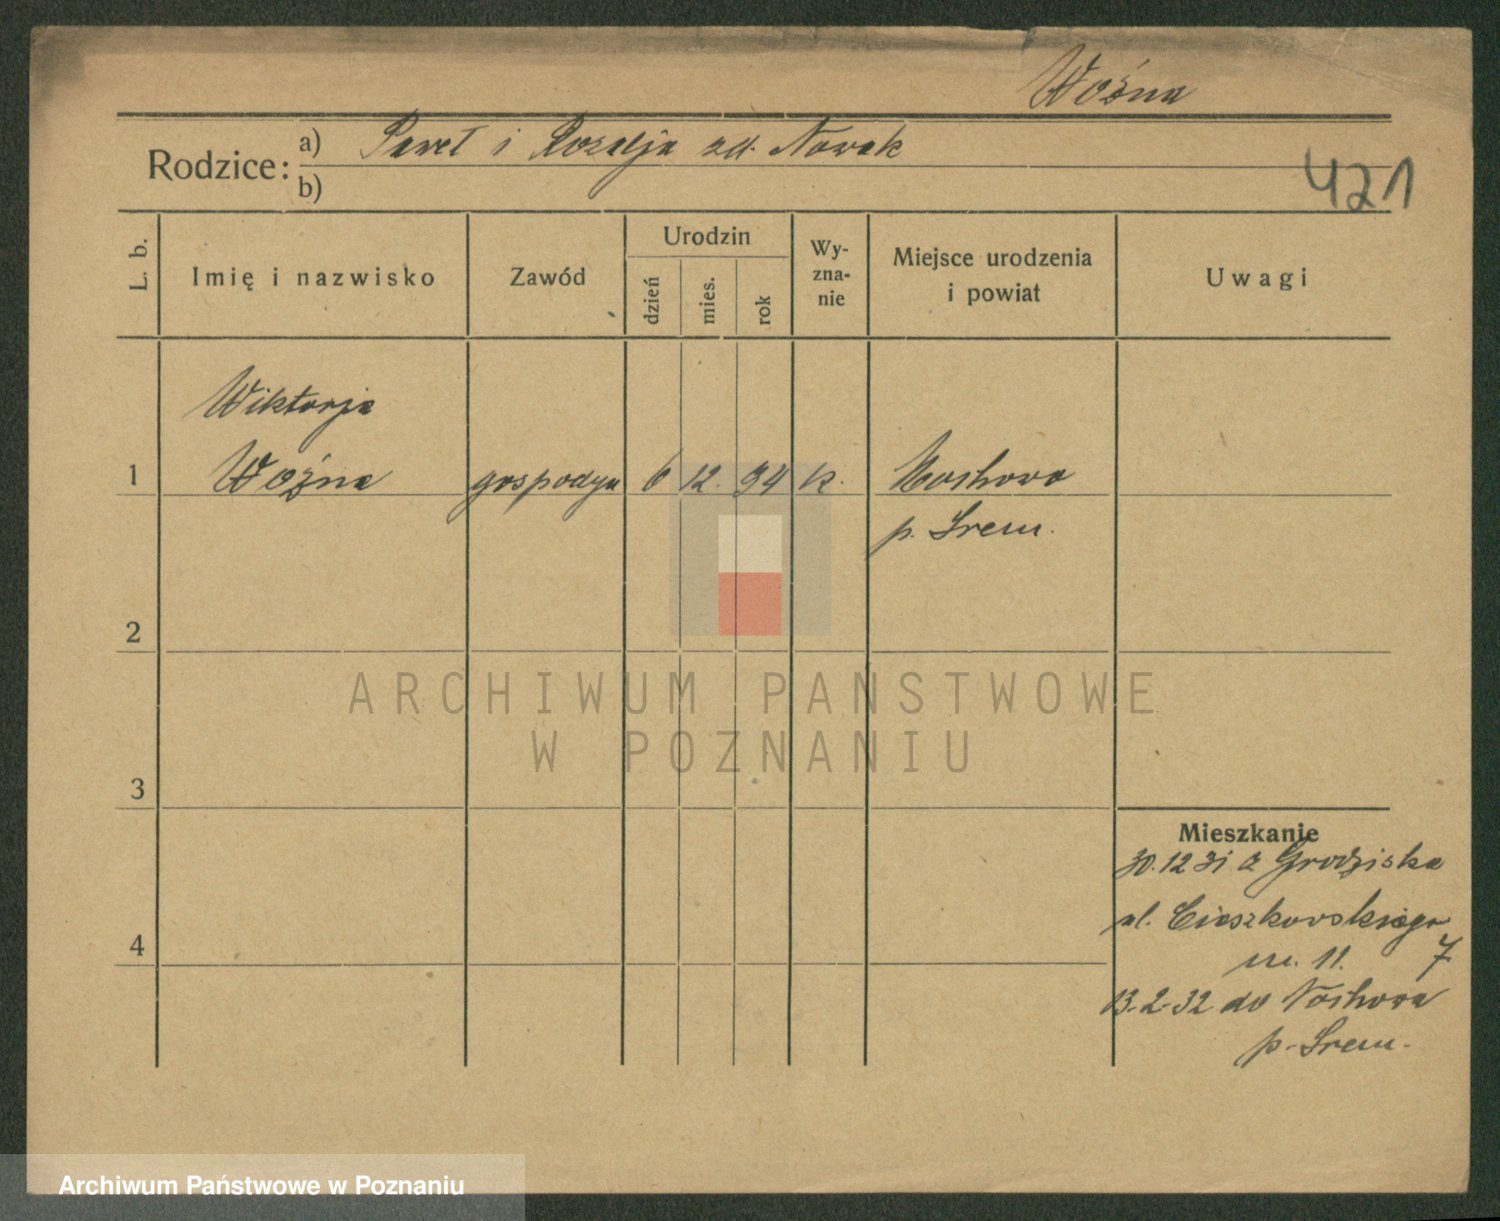 Woźna
Rodzice: a) Paweł i Rozalja zd. Nowak
b)
421
L. b.
Imię i nazwisko
Zawód
Urodzin
dzień
mies.
rok
Wy-
zna-
nie
Miejsce urodzenia
i powiat
Uwagi
Wiktorja
1 Woźna gospodyn 6 12. 94 k. Nochowo
p. Śrem.
2
3
4
Mieszkanie
30.12 31 z Grodziska
ul. Cieszkowskiego
m. 11. 7
13.-2-32 do Nochowa
p. Śrem.
ARCHIWUM PAŃSTWOWE
W POZNANIU
Archiwum Państwowe w Poznaniu